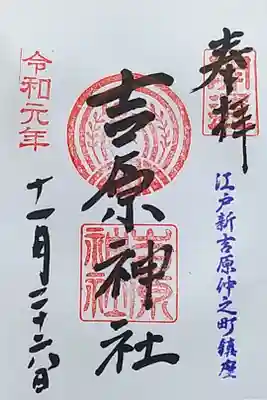 奉拝
江戸新吉原仲之町鎮座
吉原神社
令和元年
十一月二十六日